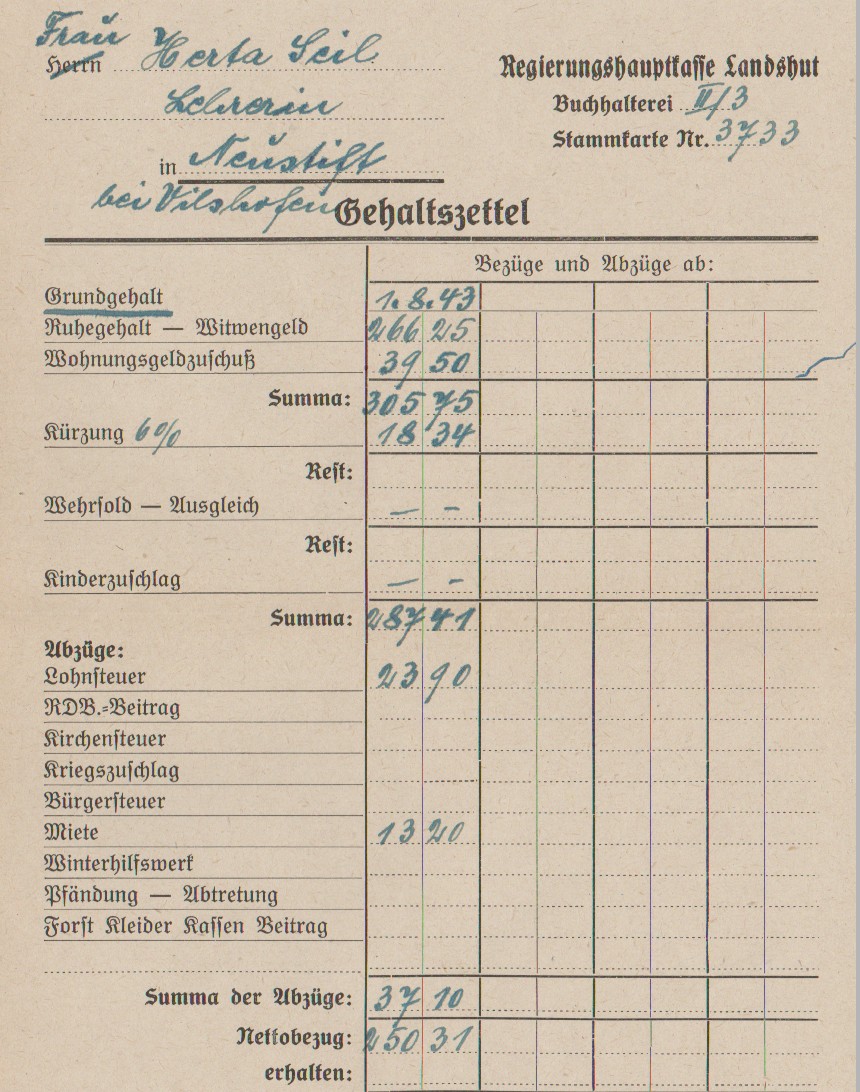 Frau
Herrn Herta Seil
Lehrerin
in Neustift
bei Vilshofen
Regierungshauptkasse Landshut
Buchhalterei II/3
Stammkarte Nr. 3733
Gehaltszettel
Bezüge und Abzüge ab:
Grundgehalt 1.8.43
Ruhegehalt — Witwengeld 266 25
Wohnungsgeldzuschuß 39 50
Summa: 305 75
Kürzung 6% 18 34
Rest:
Wehrsold — Ausgleich — -
Rest:
Kinderzuschlag — -
Summa: 287 41
Abzüge:
Lohnsteuer 23 90
RDB.=Beitrag
Kirchensteuer
Kriegszuschlag
Bürgersteuer
Miete 13 20
Winterhilfswerk
Pfändung — Abtretung
Forst Kleider Kassen Beitrag
Summa der Abzüge: 37 10
Nettobezug: 250 31
erhalten: